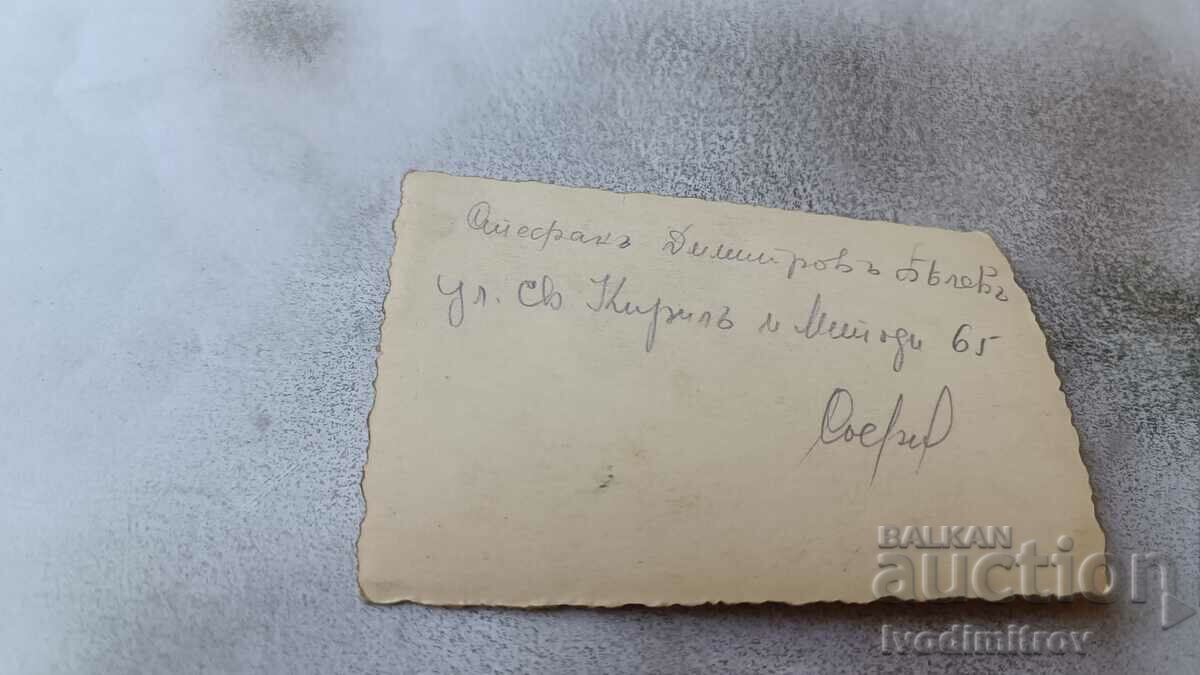 Стефанъ Димитровъ Бѣлевъ
ул. Св Кирилъ и Методи 65
София
BALKAN
auction
ivodimitrov